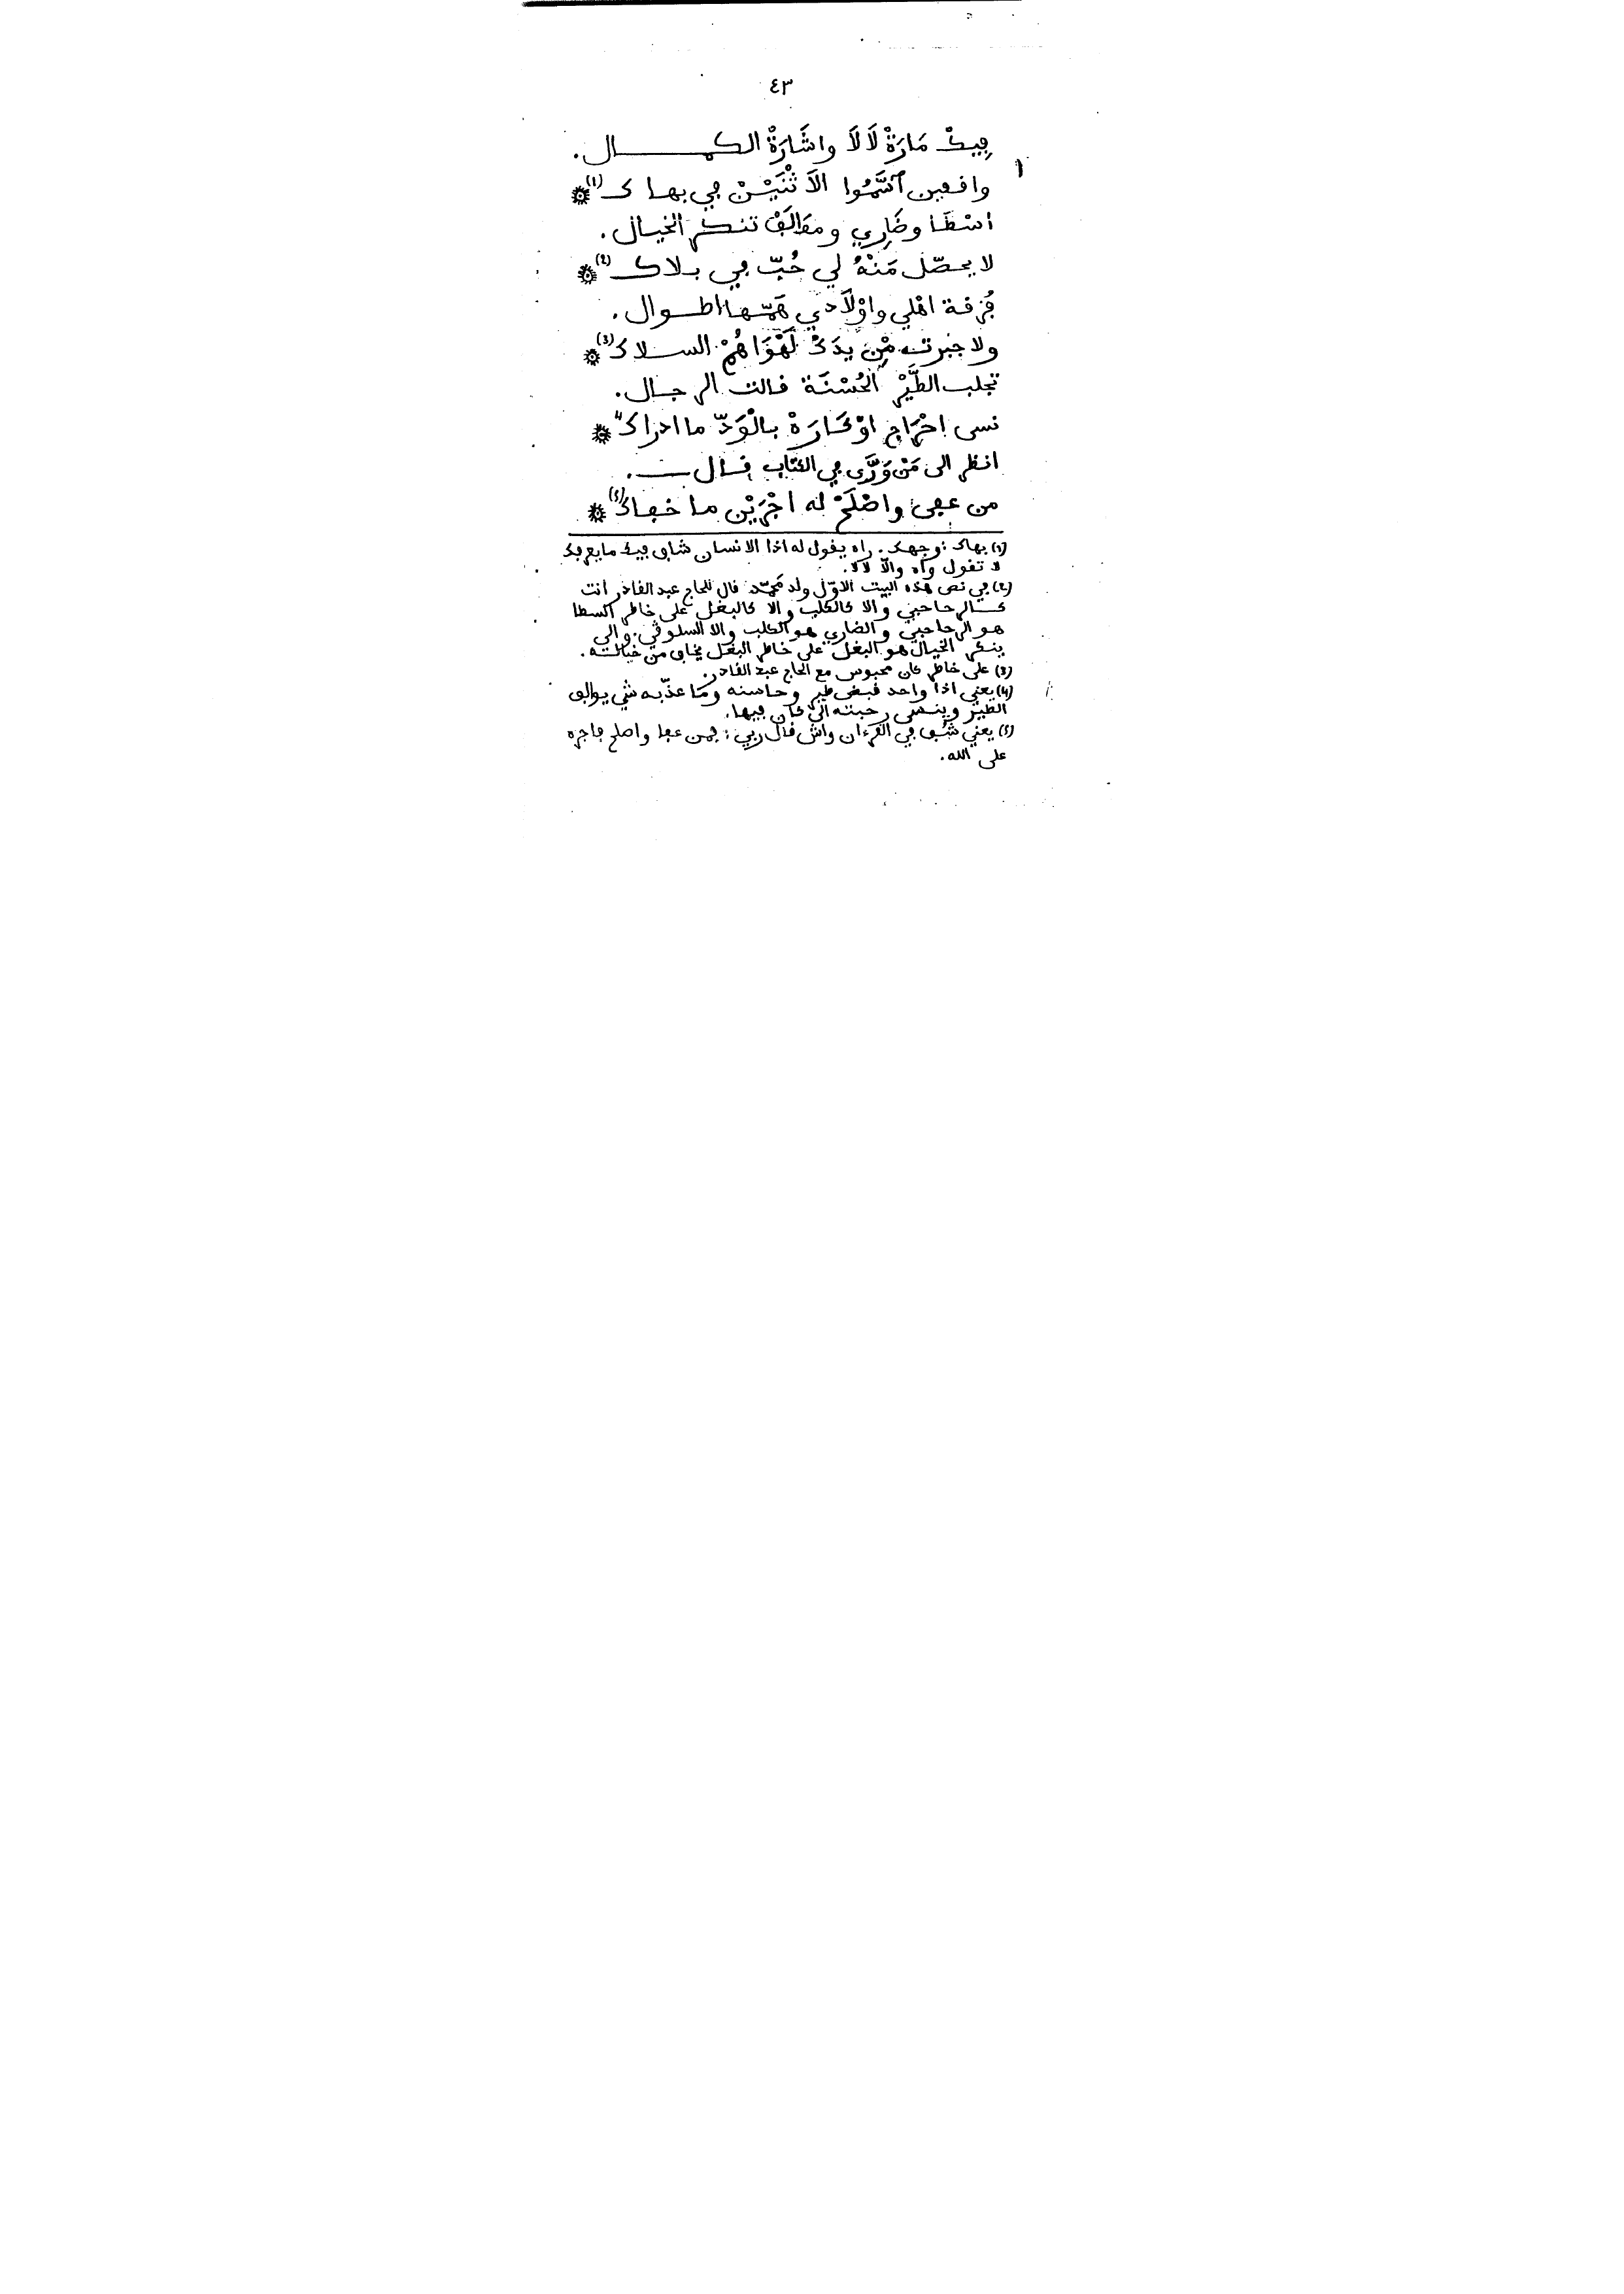 ٤٣
ڢيكْ مَارَةْ لَالَا واشَارَةْ الكمـــــال.
واڧڢين اَسَّمُوا الَاثْنَيْـنْ ڢي بهاك (1)
اسْطَا وضَارِي ومْوَالَڢْ تنكر الخيـال.
لا يحصّل مَنْهُ لي حُبّ ڢي بـلاك (2)
ڢُرڧة اهْلي واوْلَادي هَمّـها اطـوال.
ولا جبرت مْن يدَكْ لَهْوَاهُمْ الســلاك (3)
تجلب الطَّيْرْ الحُسْنَة ڧالت الرجـال.
نسى احْرَاج اوْكَارَهْ بالْوَدّ ما ادراك (4)
انظر الى مَنْ وَرَّى ڢي الكتاب ڧــال.
من عڢى واصْلَحْ له اجْرَيْن ما خڢاكْ (5)
(1) بهاك: وجهك. راه يڧول له اذا الانسان شاڢ ڢيك ما يعرڢك
لا تڧول واه والّا لالا.
(2) ڢي نص هذه البيت الاوّل ولد محمّد ڧال للحاج عبد الڧادر انت
كـالرحاحبي والا كالكلب والا كالبغل على خاطر السطا
هو الرحاحبي والضاري هو الكلب والا السلوڧي. والي
ينكر الخيال هو البغل على خاطر البغل يخاڢ من خيالته.
(3) على خاطر كان محبوس مع الحاج عبد الڧادر.
(4) يعني اذا واحد ڧبض طير وحاسنه وما عذّبه شي يوالڢ
الطير وينسى رحبته الي كان ڢيها.
(5) يعني شُڢ ڢي الڧرءان واش ڧال ربي: ڢمن عڢا واصلح ڢاجره
على الله.